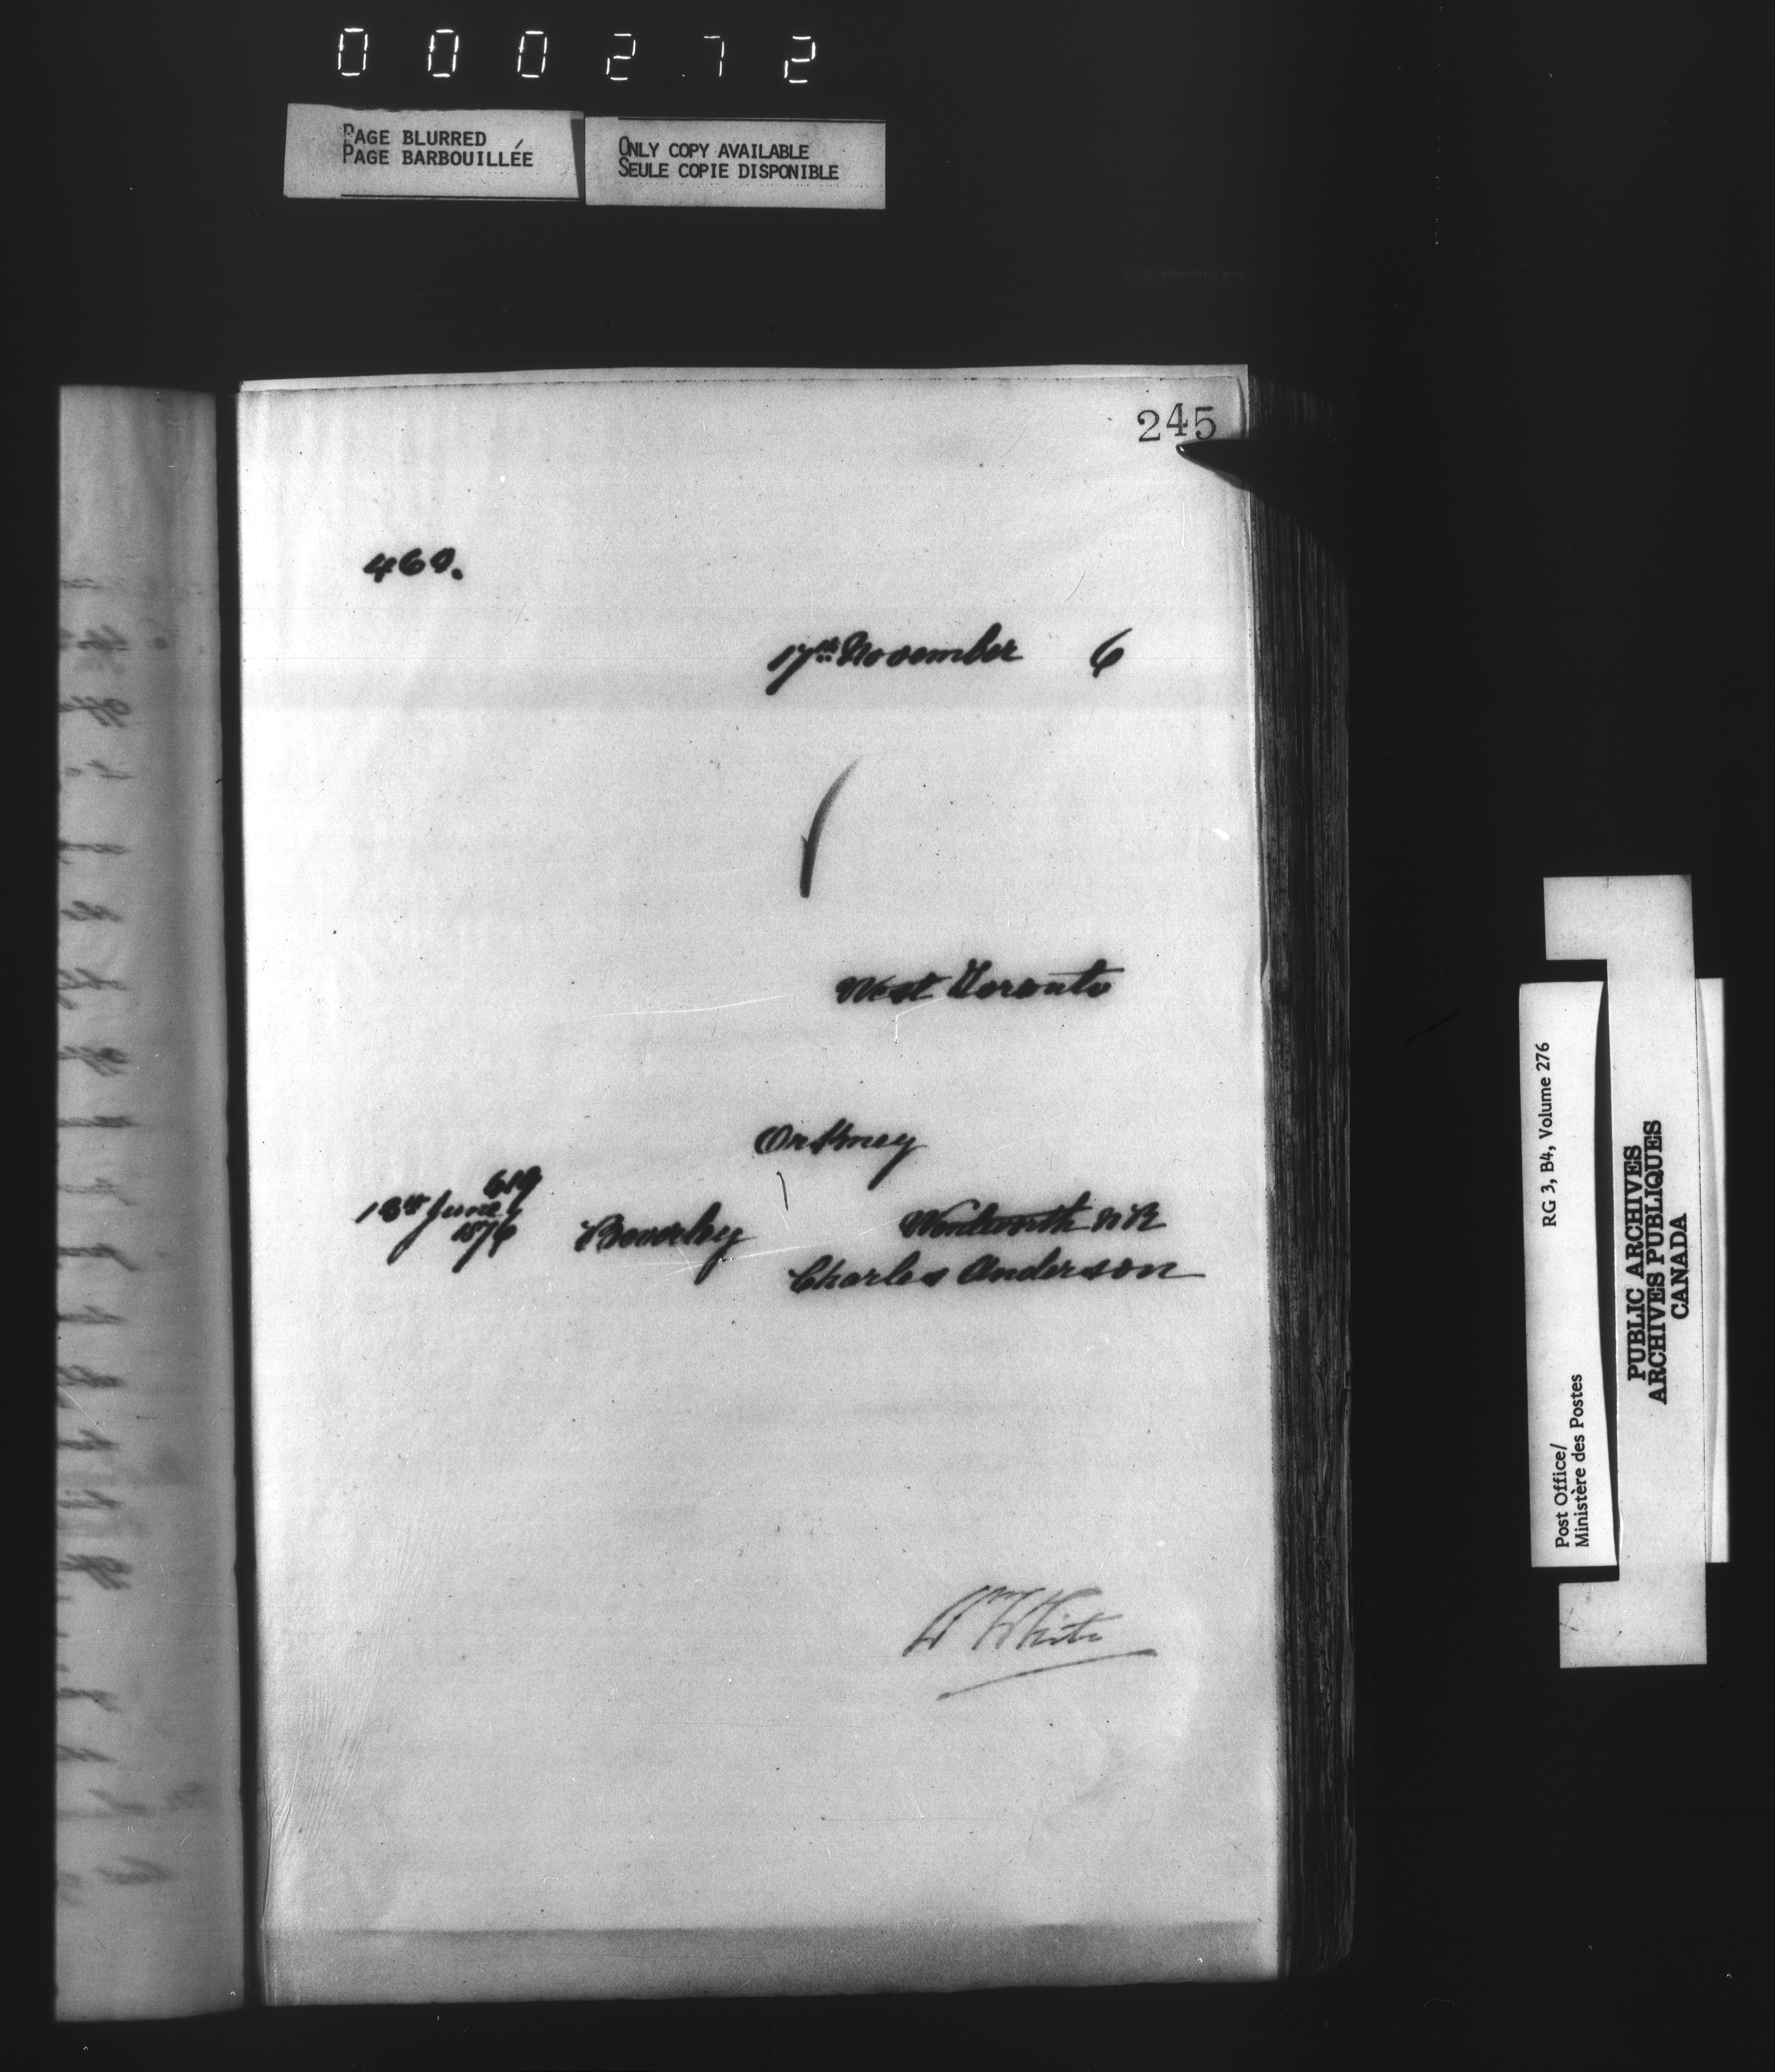 000272
PAGE BLURRED
PAGE BARBOUILLÉE
ONLY COPY AVAILABLE
SEULE COPIE DISPONIBLE
245
460.
17th November 6
West Toronto
Orkney
619
13th June
1876 Beverley Wentworth N R
Charles Anderson
Wm White
RG 3, B4, Volume 276
Post Office/
Ministère des Postes
PUBLIC ARCHIVES
ARCHIVES PUBLIQUES
CANADA